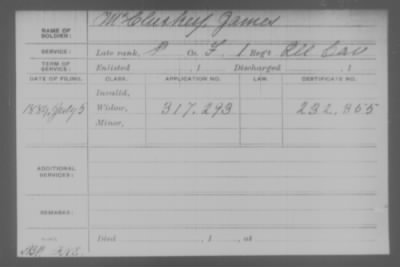 McCluskey, James
NAME OF SOLDIER:
SERVICE: Late rank, P Co. F, 1 Reg't
TERM OF SERVICE: Enlisted , 1 Discharged , 1
DATE OF FILING. CLASS. APPLICATION NO. LAW. CERTIFICATE NO.
Invalid,
1884, July 5 Widow, 317,293 232,355
Minor,
ADDITIONAL SERVICES:
REMARKS:
Died , 1 , at